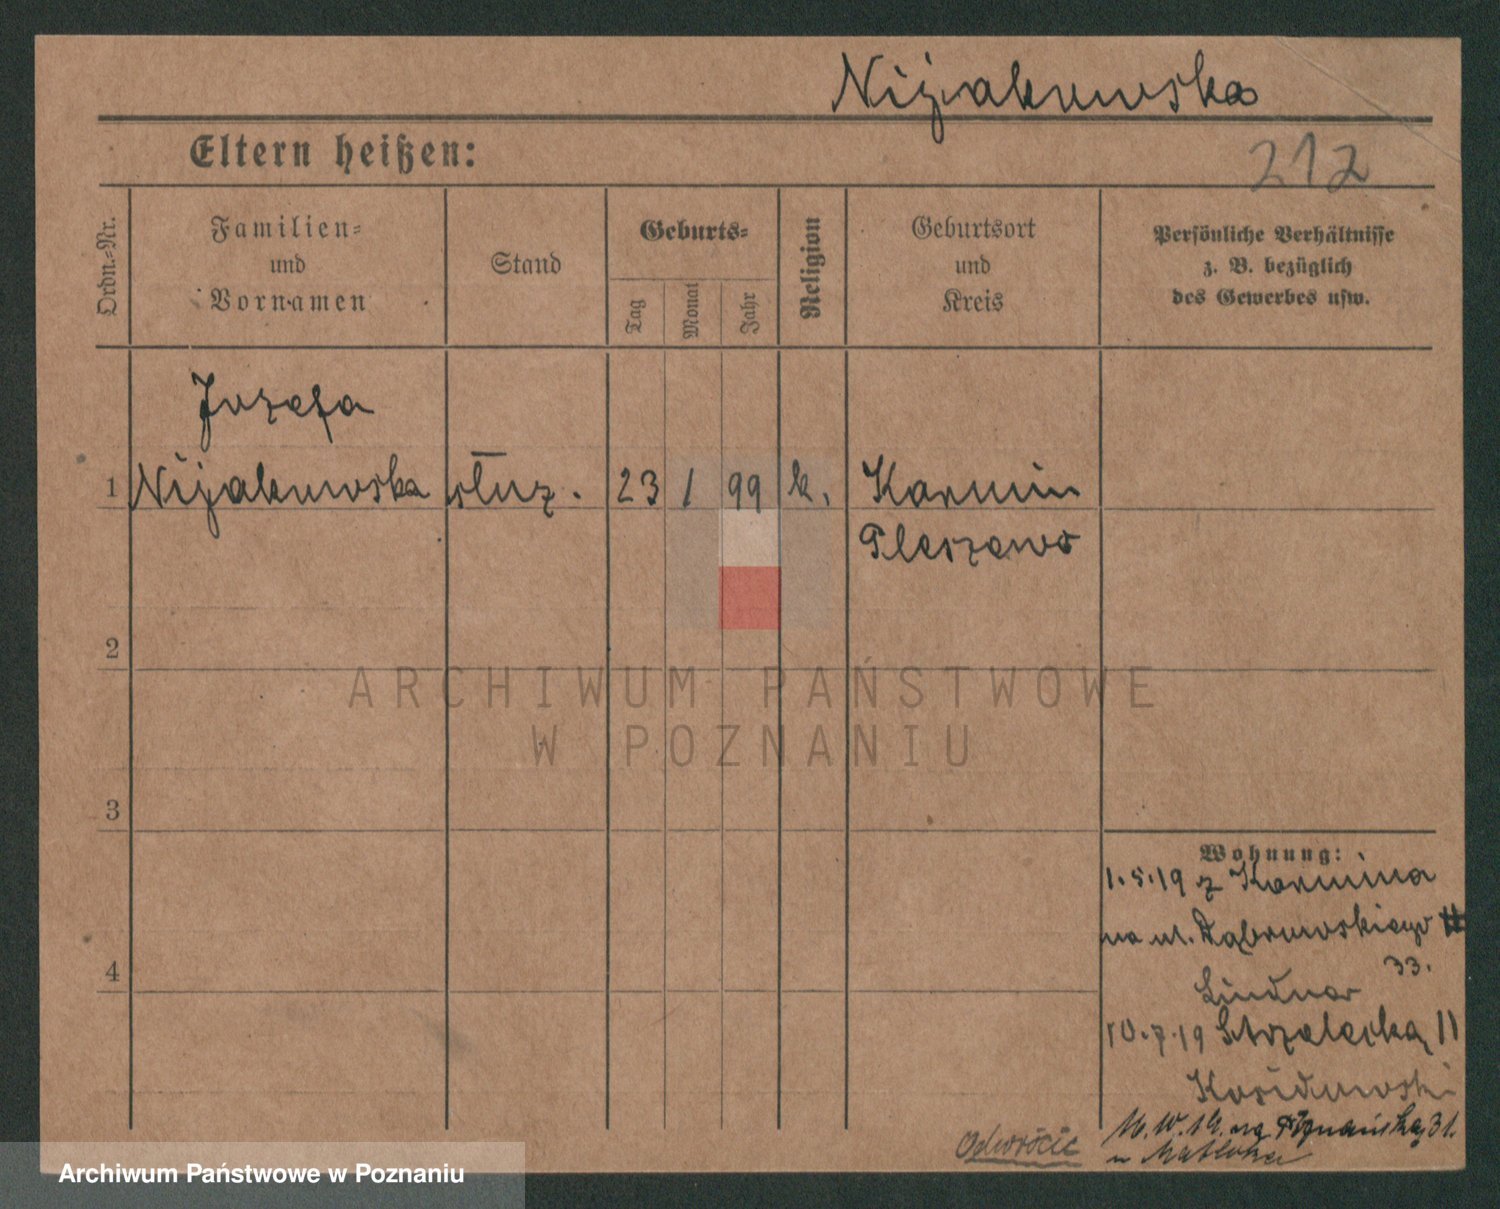 Niżakowska
Eltern heißen:
212
Ordn.-Nr.
Familien-
und
Vornamen
Stand
Geburts-
Tag
Monat
Jahr
Religion
Geburtsort
und
Kreis
Persönliche Verhältnisse
z. B. bezüglich
des Gewerbes usw.
Józefa
1 Niżakowska służ. 23 1 99 k. Karmin
Pleszewo
2
ARCHIWUM PAŃSTWOWE
W POZNANIU
3
Wohnung:
1.5.19 z Karmina
na ul. Dąbrowskiego
33.
4
Lindner
10.7.19 Strzelecka 11
Kosidowski
19. na Poznańska 31.
u
Odwrócić
Archiwum Państwowe w Poznaniu